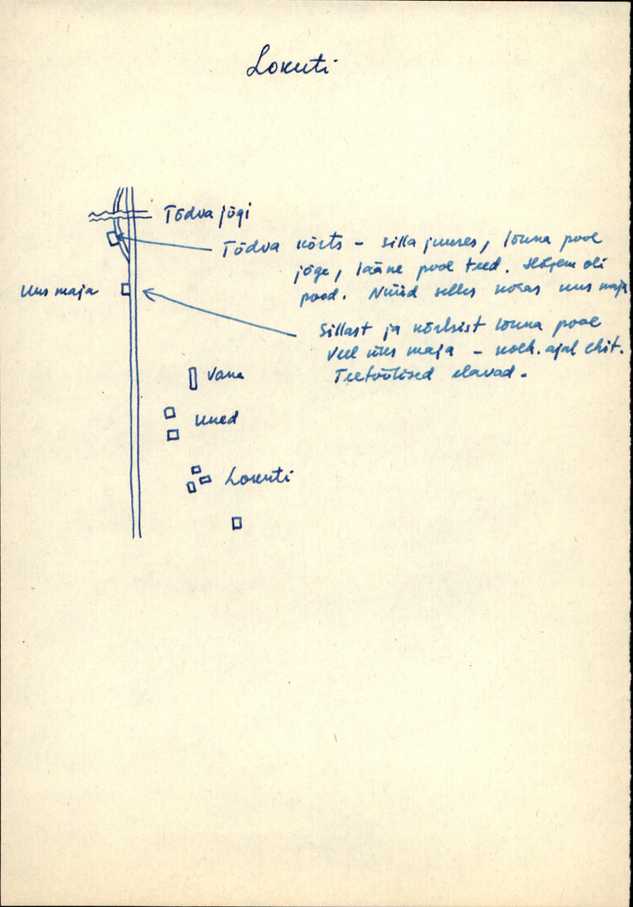 Lokuti
Tõdva jõgi
Tõdva kõrts – silla juures, lõuna pool
jõge, lääne pool teed. Hiljem oli
pood. Nüüd selles kohas uus maja
Uus maja
Sillast ja kõrtsist lõuna pool
veel üks maja – nõuk. ajal ehit.
Teetöölised elavad.
Vana
Uued
Lokuti